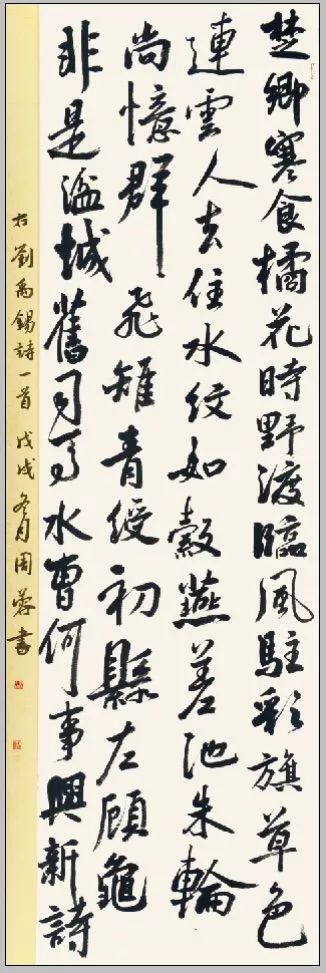 楚鄉寒食橘花時野渡臨風駐彩旗草色
連雲人去住水紋如縠燕差池朱輪
尚憶群飛雉青綬初縣左顧龜
非是湓城舊司馬水曹何事興新詩
右劉禹錫詩一首 戊戌冬月周蓉書